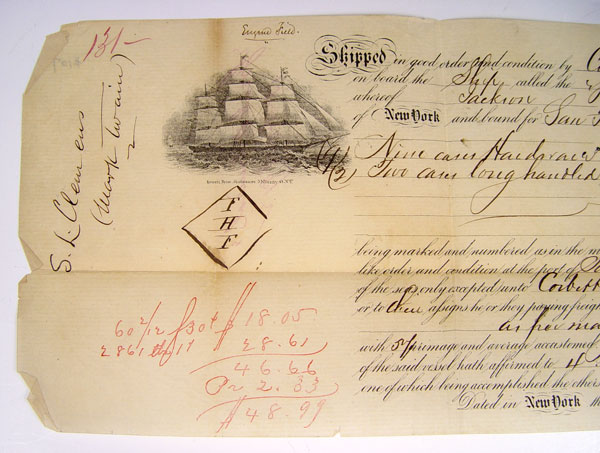 131-
Eugene Field.
S. L. Clemens
(Mark Twain)
2
Shipped in good order and condition by
on board the Ship called the
whereof Jackson
of New York and bound for San
(9/) Nine cases Hardware
(/2) Two cases long handled
F
H
F
being marked and numbered as in the
like order and condition at the port of
of the seas only excepted unto Corbett
or to their assigns he or they paying freight
with 5% primage and average accustomed
of the said vessel hath affirmed to 4
one of which being accomplished the others
Dated in New York
60 2/12 30¢ $18.05
2861 17 28.61
46.66
Pr 2.33
$48.99